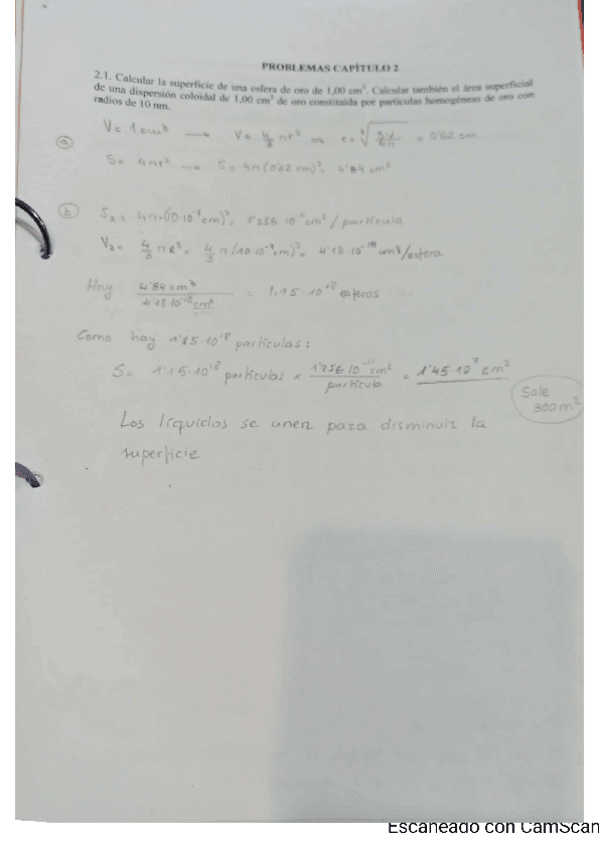 PROBLEMAS CAPÍTULO 2
2.1. Calcular la superficie de una esfera de oro de 1,00 cm³. Calcular también el área superficial
de una dispersión coloidal de 1,00 cm³ de oro constituida por partículas homogéneas de oro con
radios de 10 nm.
a
V = 1cm³ → V = 4/3 πr³ ⇒ r = ∛(3V/4π) = 0'62 cm
S = 4πr² → S = 4π(0'62 cm)² = 4'84 cm²
b
S₂ = 4π·(10·10⁻⁷cm)² = 1'256·10⁻¹¹cm²/partícula
V₂ = 4/3 πR³ = 4/3 π(10·10⁻⁷cm)³ = 4'18·10⁻¹⁸ cm³/esfera
Hay 4'84cm³/4'18·10⁻¹⁸cm³ = 1,15·10¹⁸ esferas
Como hay 1'15·10¹⁸ partículas:
S = 1'15·10¹⁸ partículas × 1'256·10⁻¹¹cm²/partícula = 1'45·10⁷ cm²
Sale
300m²
Los líquidos se unen para disminuir la
superficie
Escaneado con CamScan